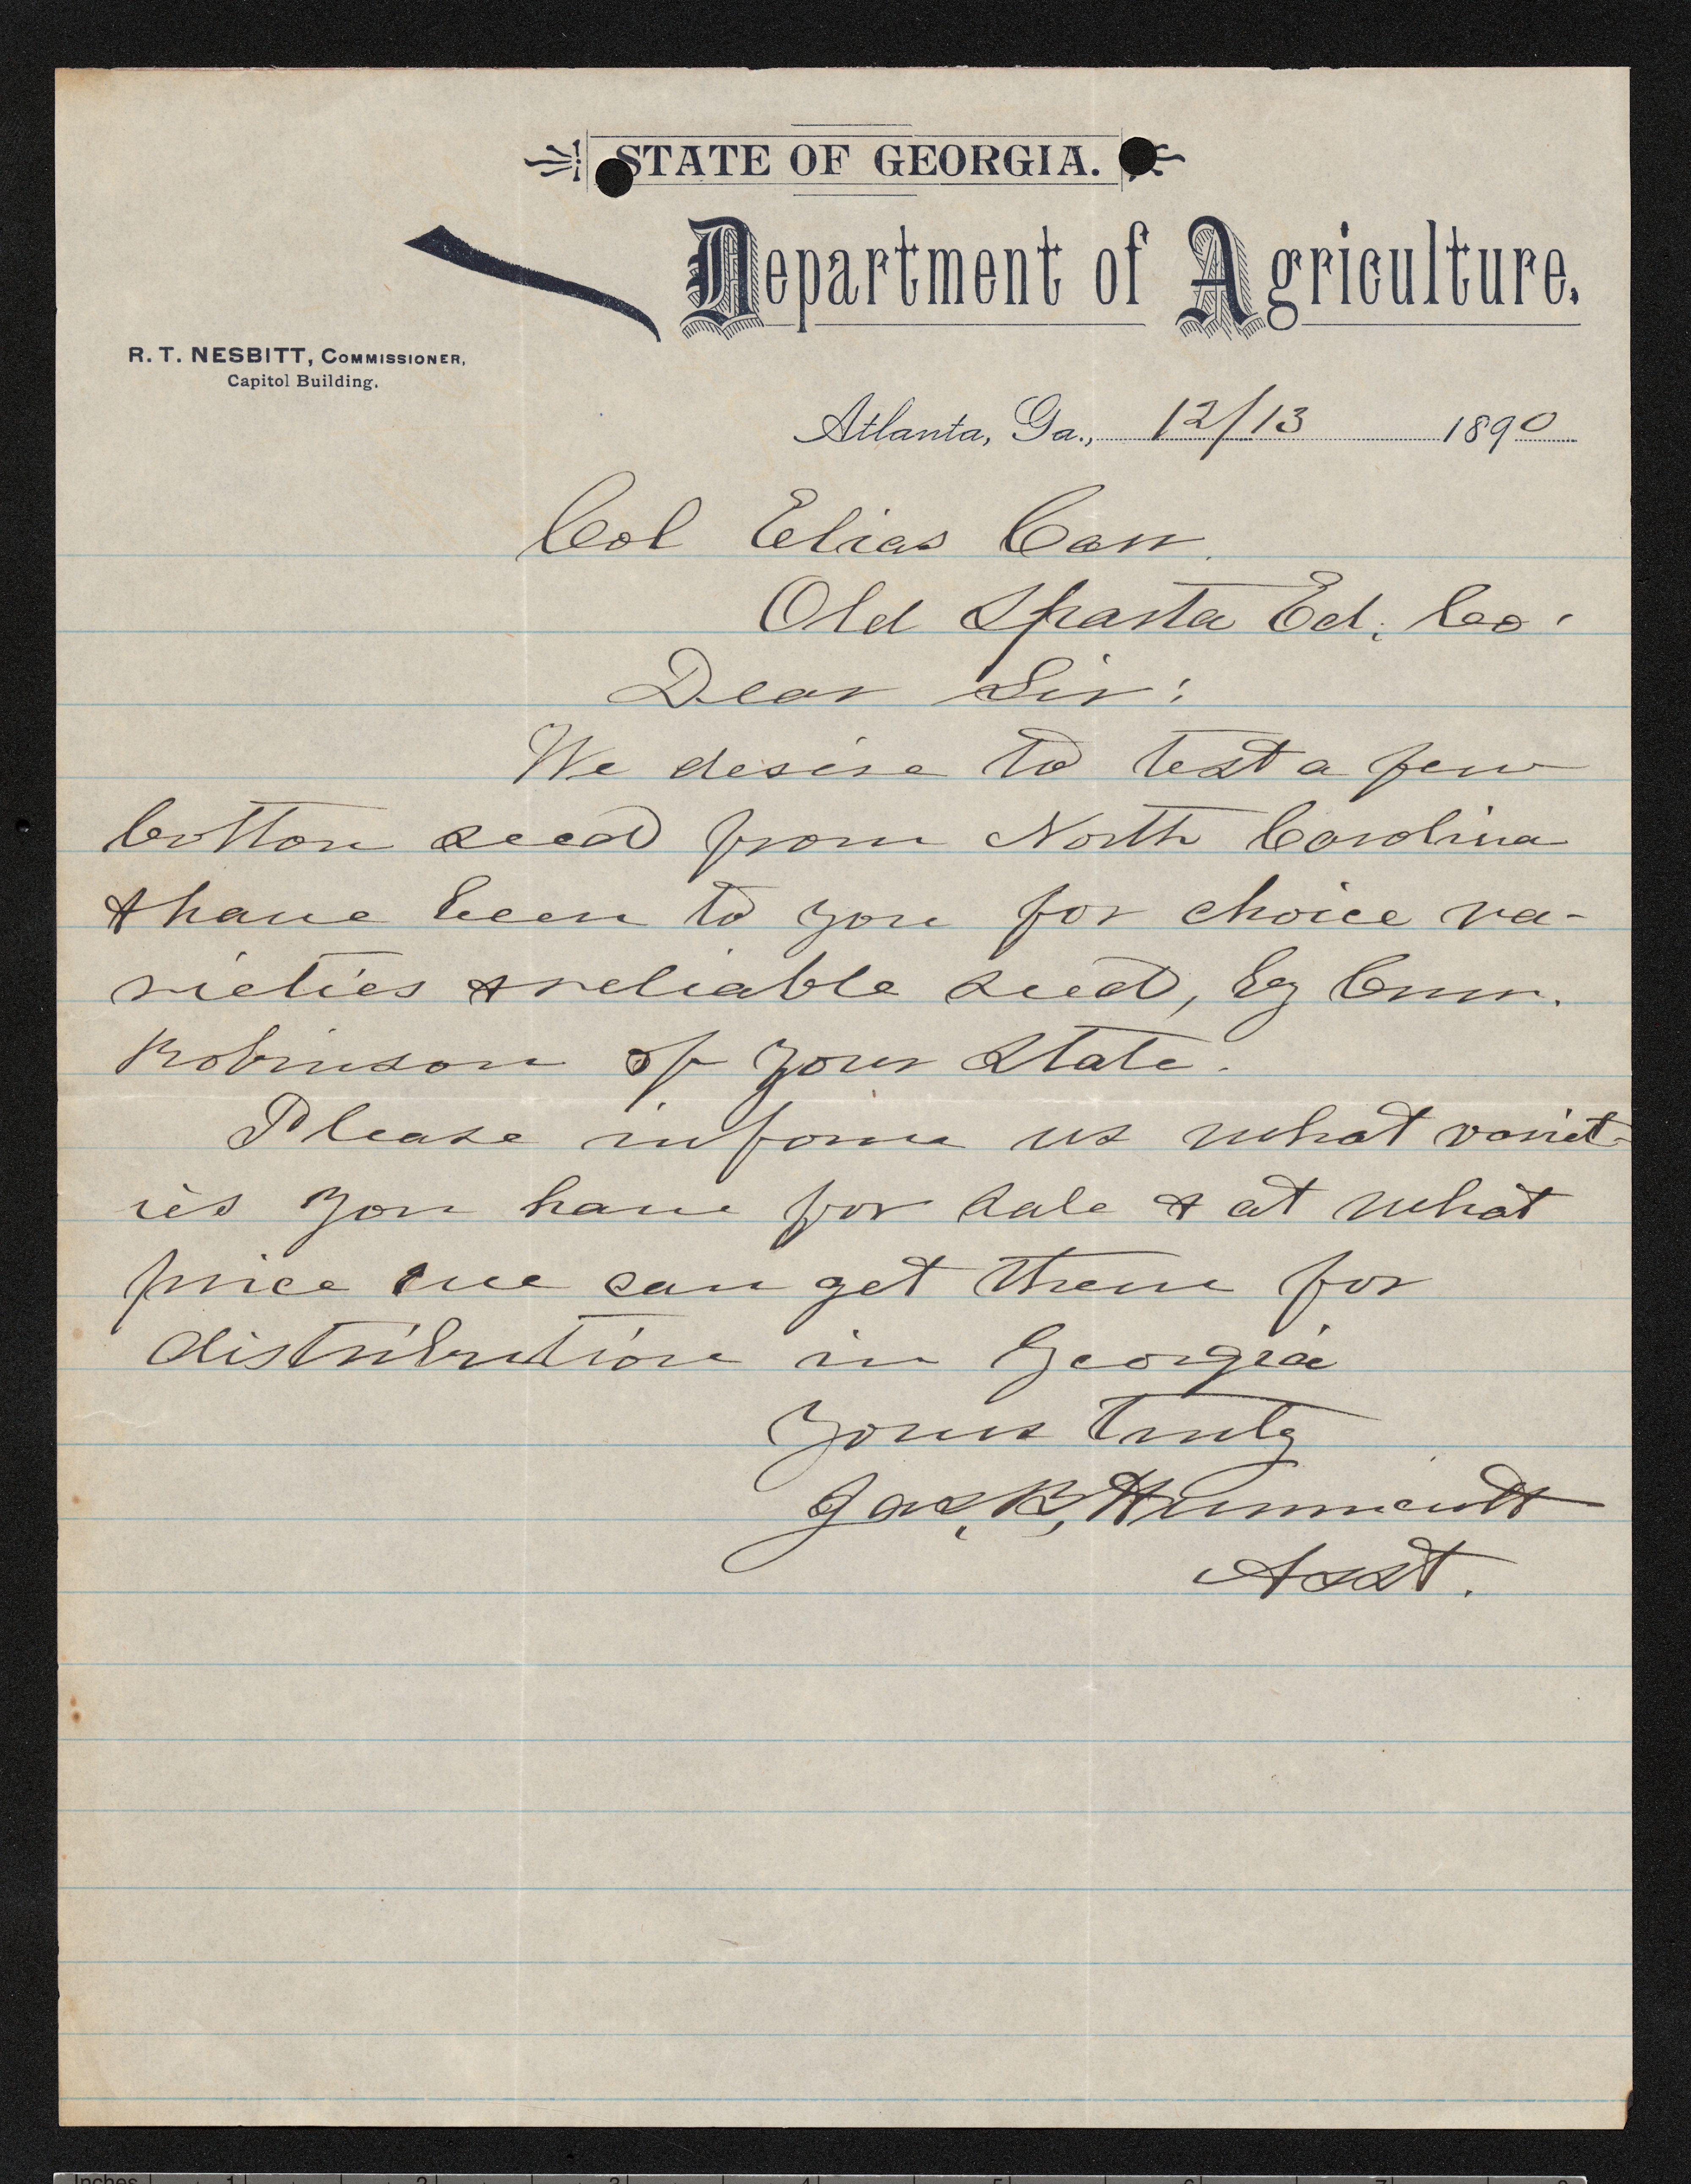 STATE OF GEORGIA.
Department of Agriculture.
R. T. NESBITT, COMMISSIONER,
Capitol Building.
Atlanta, Ga., 12/13 1890
Col Elias Carr.
Old Sparta Ed. Co.
Dear Sir:
We desire to test a few
Cotton seed from North Carolina
& have been to you for choice va-
rieties & reliable seed, by Comr.
Robinson of your State.
Please inform us what variet-
ies you have for sale & at what
price we can get them for
distribution in Georgia
Yours truly
Jas. B. Hunnicutt
Asst.
Inches 1 2 3 4 5 6 7 8